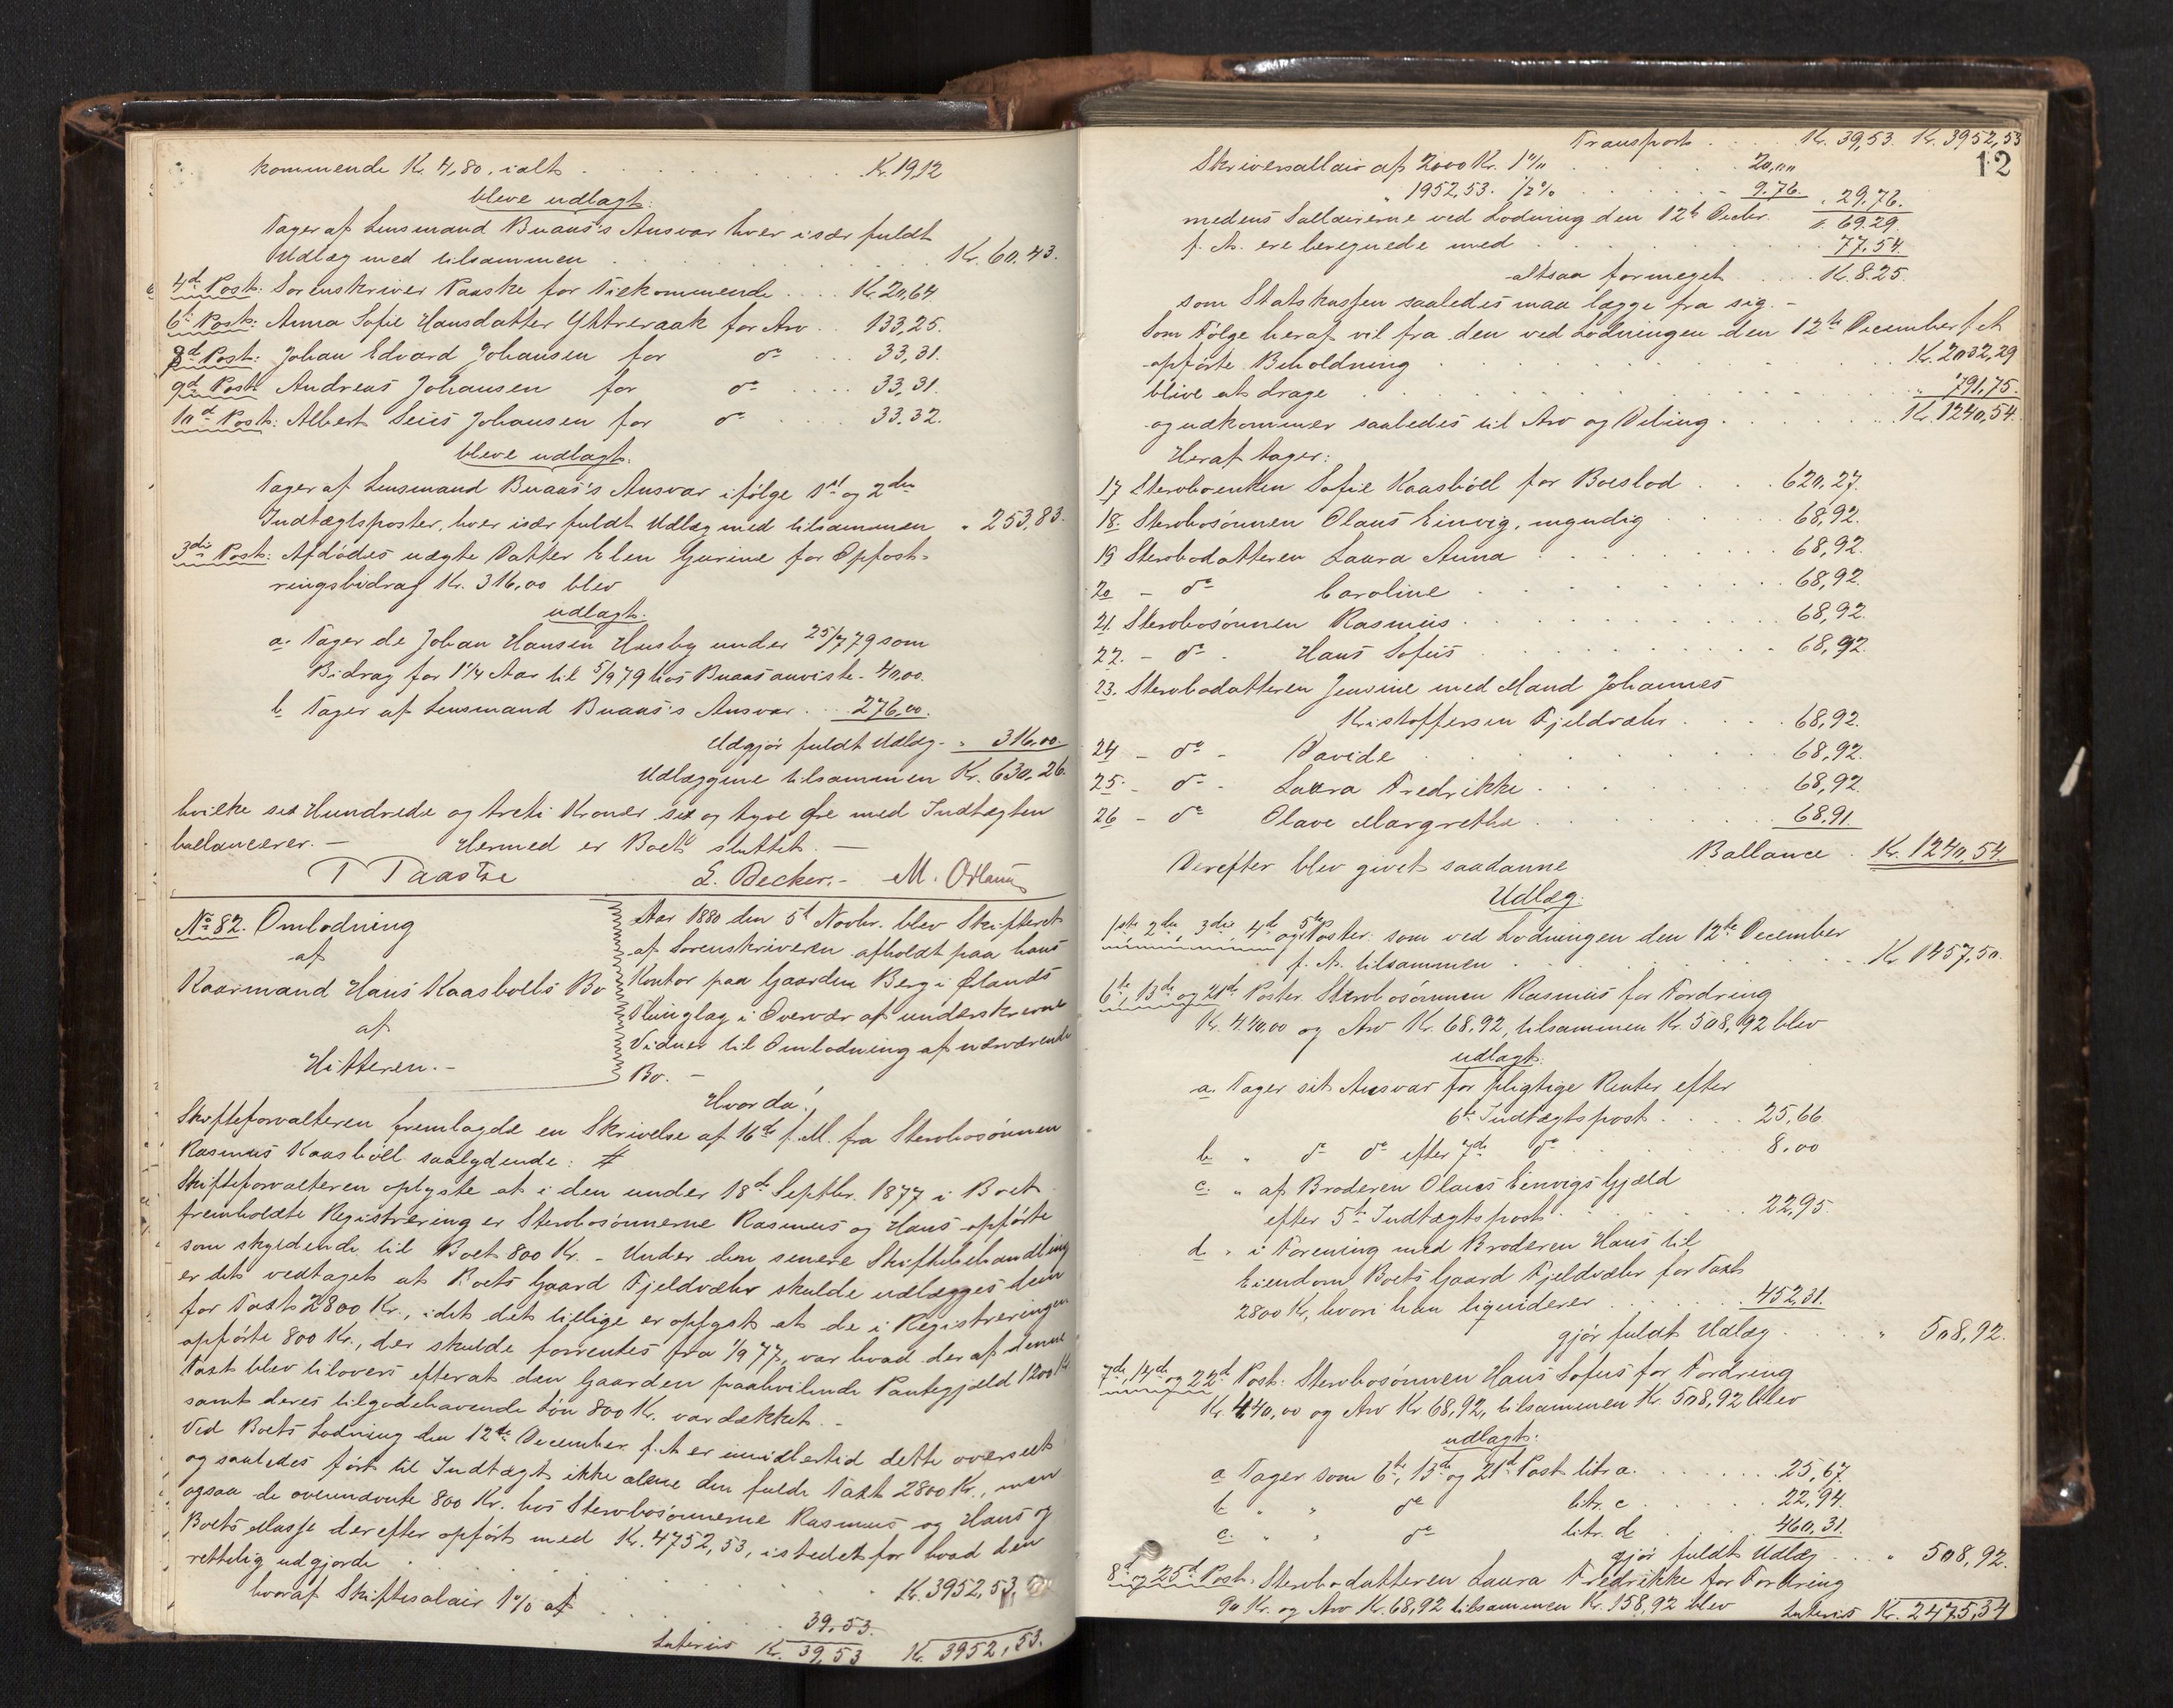 kommende Kr. 4,80. ialt . . . Kr. 19,12
bleve udlagt:
Tager af Lensmand Buaas's Ansvar hver især fuldt
Udlæg med tilsammen . . . Kr. 60.43.
4de Post: Sorenskriver Paaske for Tilkommende . . . Kr. 20,64.
6te Post: Anna Sofie Hansdatter Yttreraak for Arv . . 133,25.
8de Post: Johan Edvard Johansen for do . . . 33,31.
9de Post: Andreas Johansen for do . . . 33,31.
10de Post: Albert Johansen for do . . . 33,32.
bleve udlagt:
Tager af Lensmand Buaas's Ansvar ifølge 1ste og 2den
Indtægtsposter, hver især fuldt Udlæg med tilsammen „ 253,83.
3die Post: Afdødes uægte Datter Elen Gurine for Opfost-
ringsbidrag Kr. 316,00 blev
udlagt:
a. Tager de Johan Hansen Husby under 25/7 79 som
Bidrag for 1 1/4 Aar til 5/9 79 hos Buaas anviste - 40,00.
b Tager af Lensmand Buaas's Ansvar . . 276,00.
Udgjør fuldt Udlæg - „ 316,00
Udlæggene tilsammen Kr. 630,26
hvilke sex Hundrede og treti Kroner sex og tyve Øre med Indtægten
ballancerer. — Hermed er Boet sluttet. —
T Paaske L. Becker. - M.
No 82. Omlodning
af
Kaarmand Hans Kaasbølls Bo
af
Hitteren. -
Aar 1880 den 5te Novbr. blev Skifteret
af Sorenskriveren afholdt paa hans
Kontor paa Gaarden Berg i Ølands
Thinglag i Overvær af underskrevne
Vidner til Omlodning af nærværende
Bo. -
Hvorda!
Skifteforvalteren fremlagde en Skrivelse af 16de f. M. fra Stervbosønnen
Rasmus Kaasbøll saalydende: #
Skifteforvalteren oplyste at i den under 18de Septbr. 1877 i Boet
fremholdte Registrering er Stervbosønnerne Rasmus og Hans opførte
som skyldende til Boet 800 Kr. - Under den senere Skiftebehandling
er det vedtaget at Boets Gaard Fjeldvær skulde udlægges dem
for Taxt 2800 Kr., idet det tillige er oplyst at de i Registreringen
opførte 800 Kr., der skulde forrentes fra 1/9 77, var hvad der af denne
Taxt blev tilovers efterat den Gaarden paahvilende Pantegjæld 1200 Kr
samt deres tilgodehavende Løn 800 Kr. var dækket. -
Ved Boets Lodning den 12te December f. A er imidlertid dette overseet
og saaledes ført til Indtægt ikke alene den fulde Taxt 2800 Kr., men
ogsaa de ovennævnte 800 Kr. hos Stervbosønnerne Rasmus og Hans og
Boets Masse derefter opført med Kr. 4752,53, istedetfor hvad den
rettelig udgjorde . . . Kr. 3952,53.
hvoraf Skiftesalair 1% af . . . 39,53.
Lateris Kr. 39,53 Kr. 3952,53.
Transport . . . Kr. 39,53. Kr. 3952,53
12
Skriversallair af 2000 Kr. 1% . . . 20,00
„ 1952,53. 1/2% . . . 9.76. „ 29,76.
medens Sallairerne ved Lodning den 12te Decbr. „ 69.29.
f. A. ere beregnede med . . . 77.54.
altsaa formeget . . . Kr. 8.25.
som Statskassen saaledes maa lægge fra sig. -
Som Følge heraf vil fra den ved Lodningen den 12te December f. A
opførte Beholdning . . . Kr. 2032,29
blive at drage . . . „ 791,75.
og udkommer saaledes til Arv og Deling . . . Kr. 1240,54.
Heraf tager:
17 Stervboenken Sofie Kaasbøll for Boeslod . . . 620,27.
18. Stervbosønnen Olaus Einvig, myndig . . . 68,92.
19 Stervbodatteren Laura Anna . . . 68,92.
20 - do Caroline . . . 68,92.
21. Stervbosønnen Rasmus . . . 68,92.
22. - do - Hans Sofus . . . 68,92.
23. Stervbodatteren Jensine med Mand Johannes
Kristoffersen Fjeldvær . . . 68,92.
24 - do - Davide . . . 68,92.
25. - do - Laura Fredrikke . . . 68,92.
26 - do Olave Margrethe . . . 68,91.
Ballance . Kr. 1240,54
Derefter blev givet saadanne
Udlæg:
1ste 2den, 3die 4de og 5te Poster: som ved Lodningen den 12te December
f. A. tilsammen . . . Kr. 1457,50.
6te, 13de og 21de Poster. Stervbosønnen Rasmus for Fordring
Kr. 440,00 og Arv Kr. 68,92, tilsammen Kr. 508,92 blev
udlagt:
a. Tager sit Ansvar for pligtige Renter efter
6te Indtægtspost . . . 25,66.
b. „ do do efter 7de do . . . 8,00
c. „ af Broderen Olaus Einvigs Gjæld
efter 5te Indtægtspost . . . 22,95.
d „ i Forening med Broderen Hans til
Eiendom Boets Gaard Fjeldvær for Taxt
2800 Kr, hvori han liquiderer . . . 452,31.
gjør fuldt Udlæg . . . „ 508,92.
7de, 14de og 22de Post: Stervbosønnen Hans Sofus for Fordring
Kr. 440,00 og Arv Kr. 68,92, tilsammen Kr. 508,92 blev
udlagt:
a Tager som 6te, 13de og 21de Post litr a. . . . 25,67.
b „ „ do litr. c . . . 22,94.
c. „ „ do litr. d . . . 460,31.
gjør fuldt Udlæg . . . „ 508,92.
8de og 25de Post. Stervbodatteren Laura Fredrikke for Fordring
90 Kr. og Arv Kr. 68,92 tilsammen Kr. 158,92 blev
Lateris Kr. 2475,34